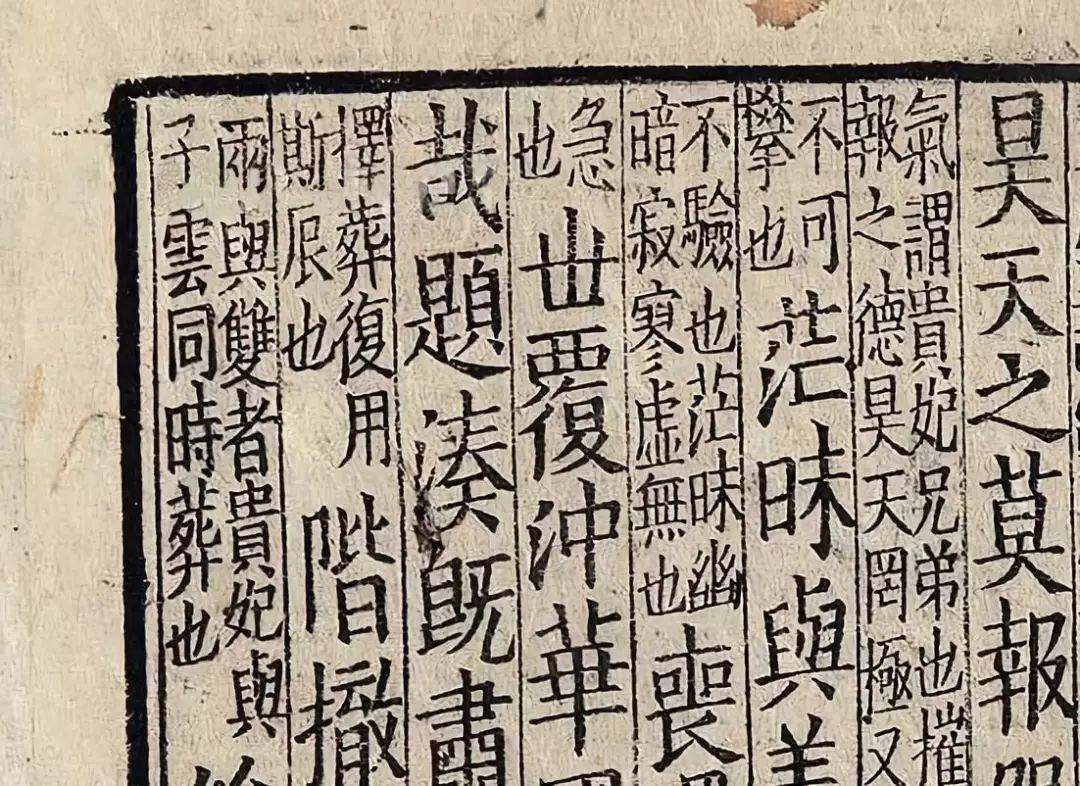 昊天之莫報
氣謂貴妃兄弟也摧
報之德昊天罔極又
不可
攀也
茫昧與
不驗也茫昧幽
暗寂寥虛無也
喪
急
也
丗覆沖華
哉題湊既肅
擇葬復用
斯辰也
階撤
兩與雙者貴妃與
子雲同時葬也